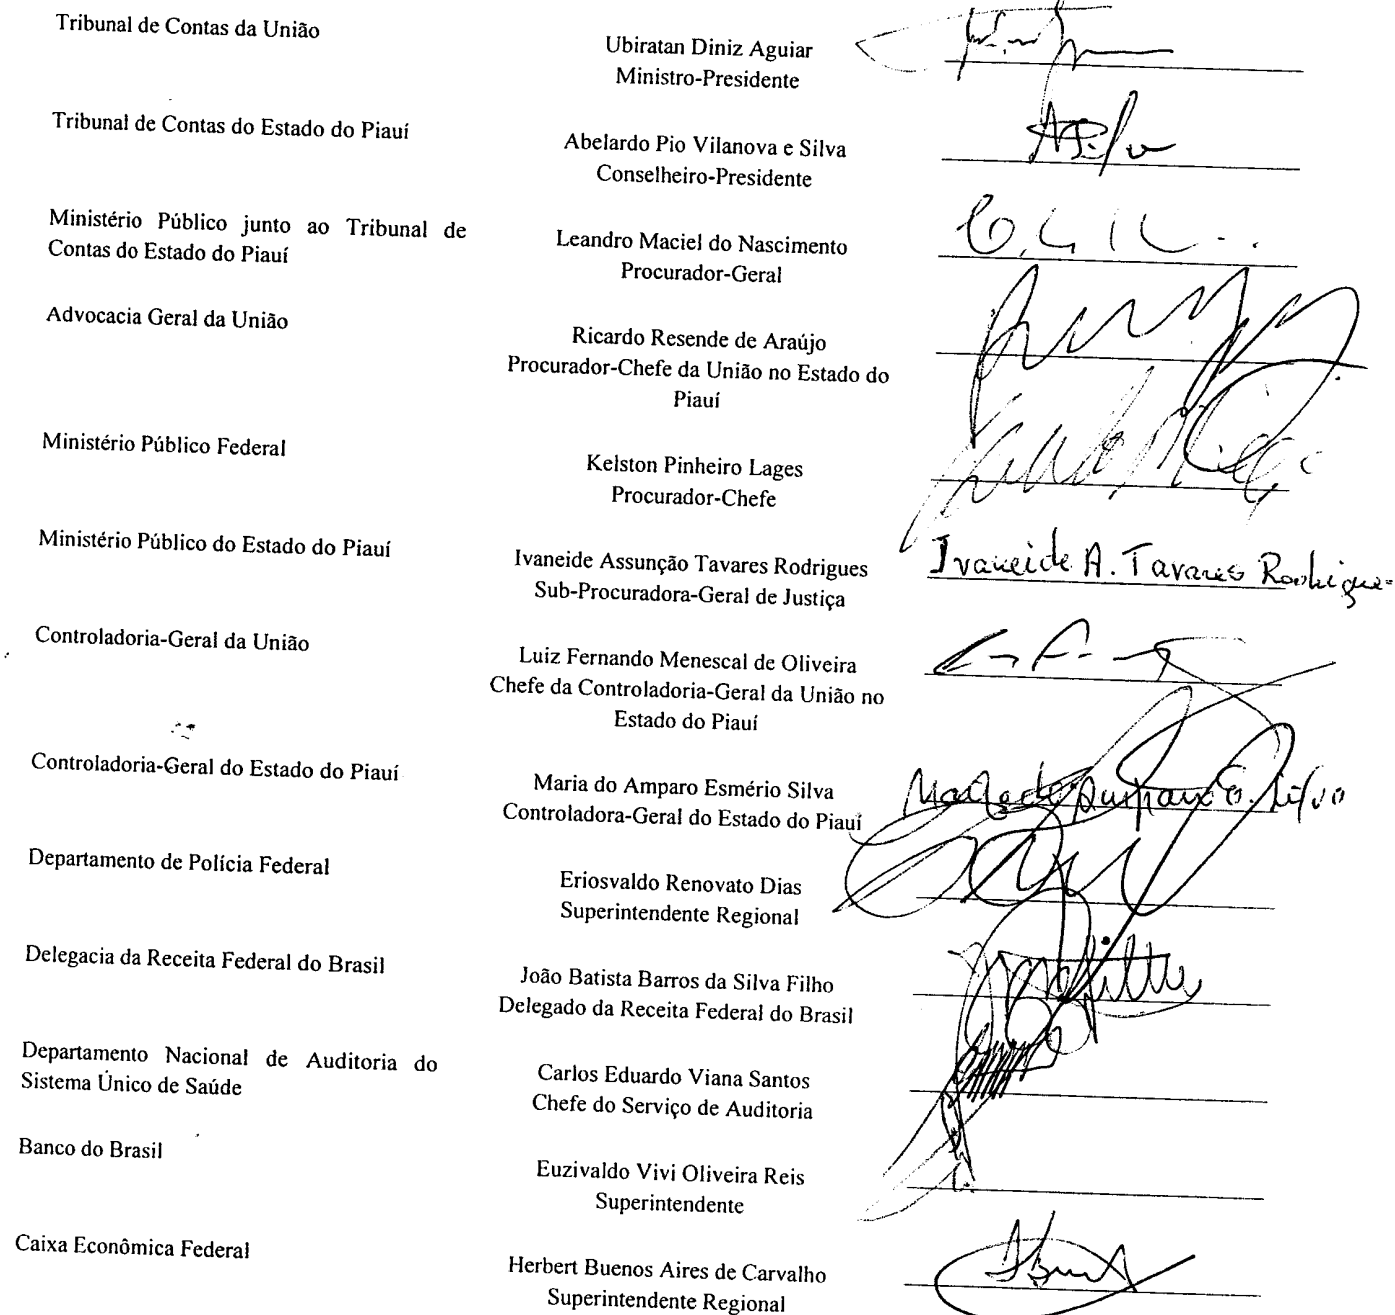 Tribunal de Contas da União
Ubiratan Diniz Aguiar
Ministro-Presidente
Tribunal de Contas do Estado do Piauí
Abelardo Pio Vilanova e Silva
Conselheiro-Presidente
Ministério Público junto ao Tribunal de
Contas do Estado do Piauí
Leandro Maciel do Nascimento
Procurador-Geral
Advocacia Geral da União
Ricardo Resende de Araújo
Procurador-Chefe da União no Estado do
Piauí
Ministério Público Federal
Kelston Pinheiro Lages
Procurador-Chefe
Ministério Público do Estado do Piauí
Ivaneide Assunção Tavares Rodrigues
Sub-Procuradora-Geral de Justiça
Ivaneide A. Tavares Rodrigues
Controladoria-Geral da União
Luiz Fernando Menescal de Oliveira
Chefe da Controladoria-Geral da União no
Estado do Piauí
Controladoria-Geral do Estado do Piauí
Maria do Amparo Esmério Silva
Controladora-Geral do Estado do Piauí
Maria do Amparo E. Silva
Departamento de Polícia Federal
Eriosvaldo Renovato Dias
Superintendente Regional
Delegacia da Receita Federal do Brasil
João Batista Barros da Silva Filho
Delegado da Receita Federal do Brasil
Departamento Nacional de Auditoria do
Sistema Único de Saúde
Carlos Eduardo Viana Santos
Chefe do Serviço de Auditoria
Banco do Brasil
Euzivaldo Vivi Oliveira Reis
Superintendente
Caixa Econômica Federal
Herbert Buenos Aires de Carvalho
Superintendente Regional